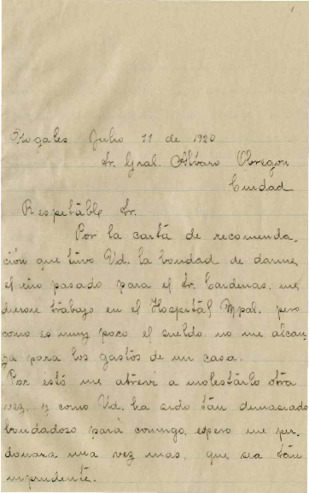 Nogales Julio 11 de 1920
Sr. Gral. Alvaro Obregon
Ciudad
Respetable Sr.
Por la carta de recomenda
ción que tuvo Ud. la bondad de darme
el año pasado para el Sr. Cardenas, me
dieron trabajo en el Hospital Mpal. pero
como es muy poco el sueldo no me alcan
za para los gastos de mi casa.
Por esto me atreví a molestarlo otra
vez, y como Ud. ha sido tan demasiado
bondadoso para conmigo, espero me per
donara una vez mas, que sea tan
imprudente.